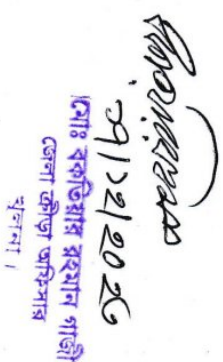 ০৭/১২/২০২৫
মোঃ বকতিয়ার রহমান গাজী
জেলা ক্রীড়া অফিসার
খুলনা।